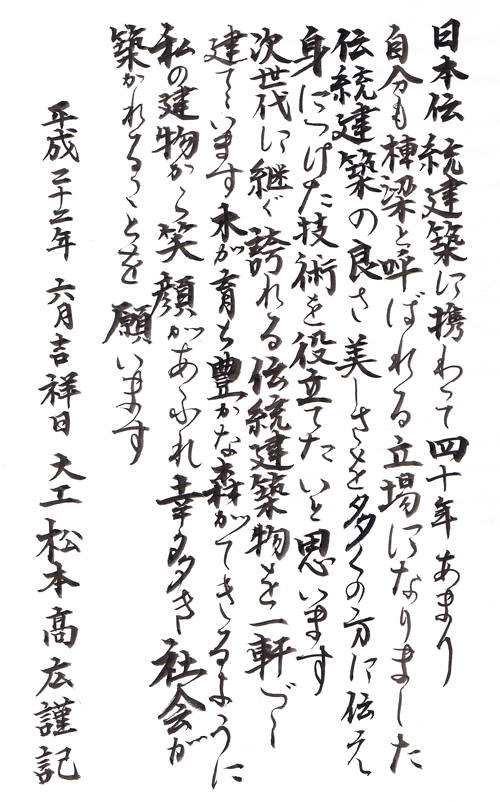 日本伝統建築に携わって四十年あまり
自分も棟梁と呼ばれる立場になりました
伝統建築の良さ美しさを多くの方に伝え
身につけた技術を役立てたいと思います
次世代に継ぐ誇れる伝統建築物を一軒づゝ
建てゝいます木が育ち豊かな森ができるように
私の建物から笑顔があふれ幸多き社会が
築かれることを願います
平成二十二年六月吉祥日大工松本高広謹記